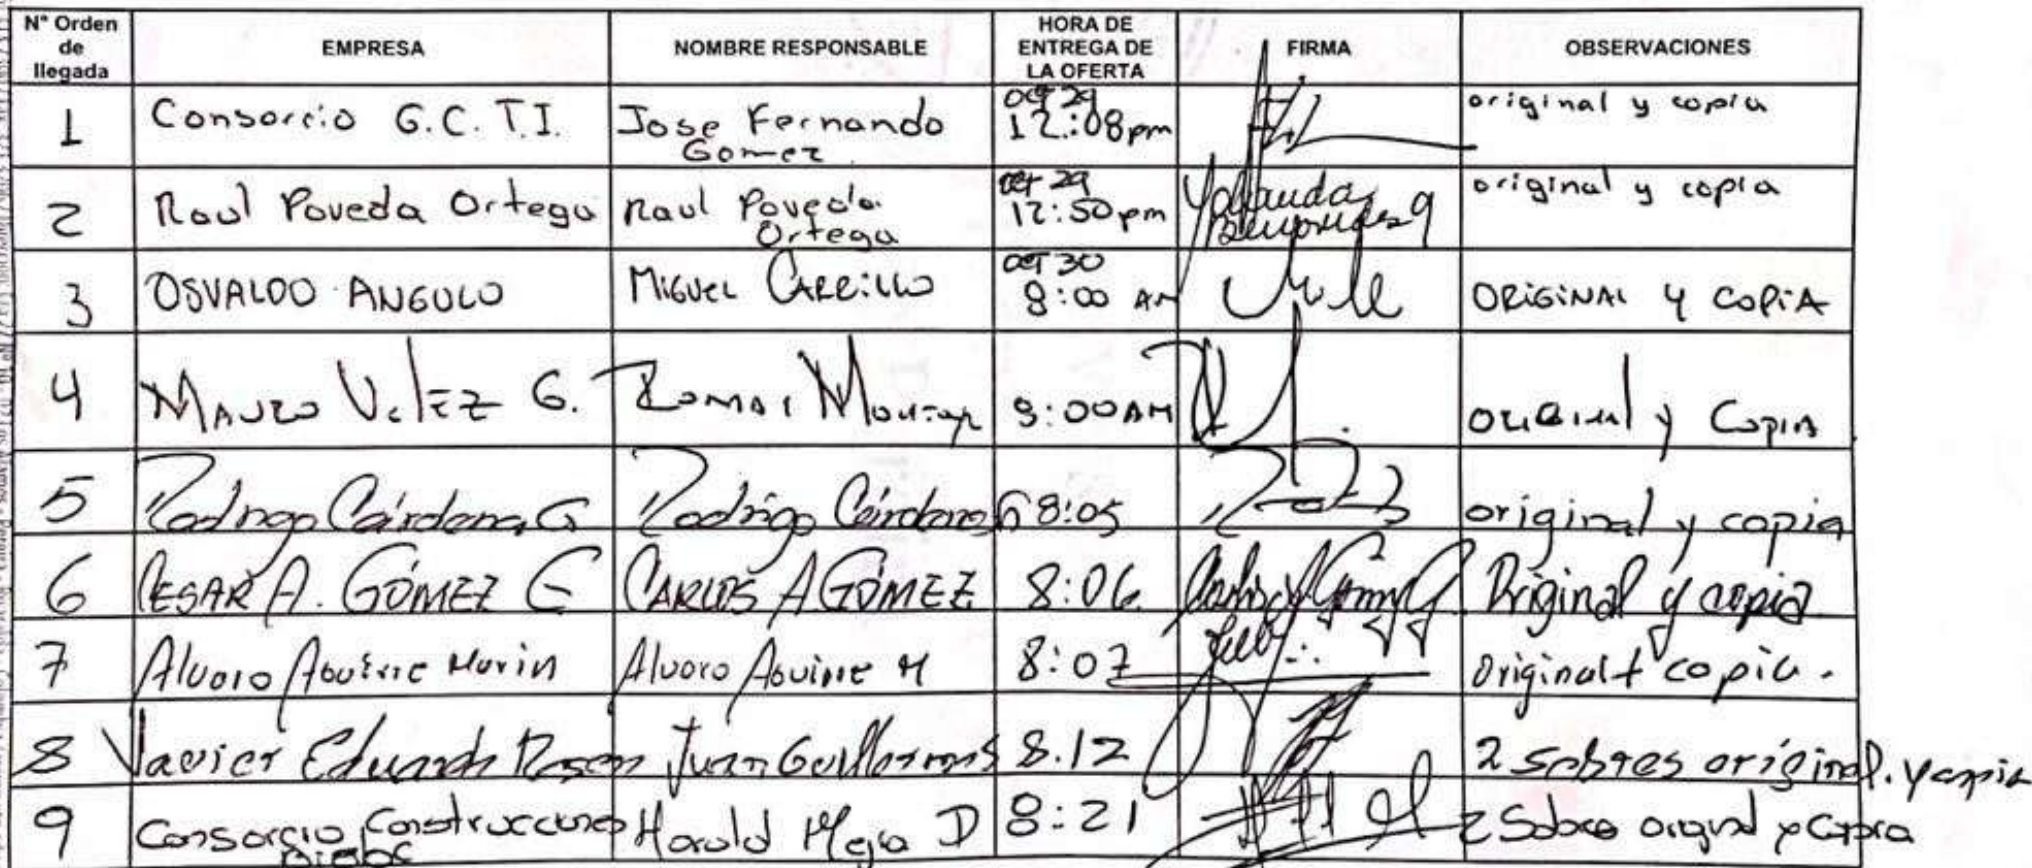 N° Orden de llegada EMPRESA NOMBRE RESPONSABLE HORA DE ENTREGA DE LA OFERTA FIRMA OBSERVACIONES
1 Consorcio G.C.T.I. Jose Fernando Gomez oct 29 12:08pm original y copia
2 Raul Poveda Ortega Raul Poveda Ortega oct 29 12:50pm original y copia
3 OSVALDO ANGULO MIGUEL CARRILLO OCT 30 8:00 AM ORIGINAL Y COPIA
4 MAURO VELEZ G. 8:00AM ORIGINAL y COPIA
5 Rodrigo Cárdenas G Rodrigo Cárdenas G 8:05 original y copia
6 CESAR A. GÓMEZ G CARLOS A GÓMEZ 8:06 Original y copia
7 Alvaro Aguirre Marin Alvaro Aguirre M 8:07 Original + copia.
8 Javier Eduardo Juan Guillermo 8.12 2 sobres original. y copia
9 Consorcio Construcciones Harold Mejia D 8:21 2 Sobres original y copia